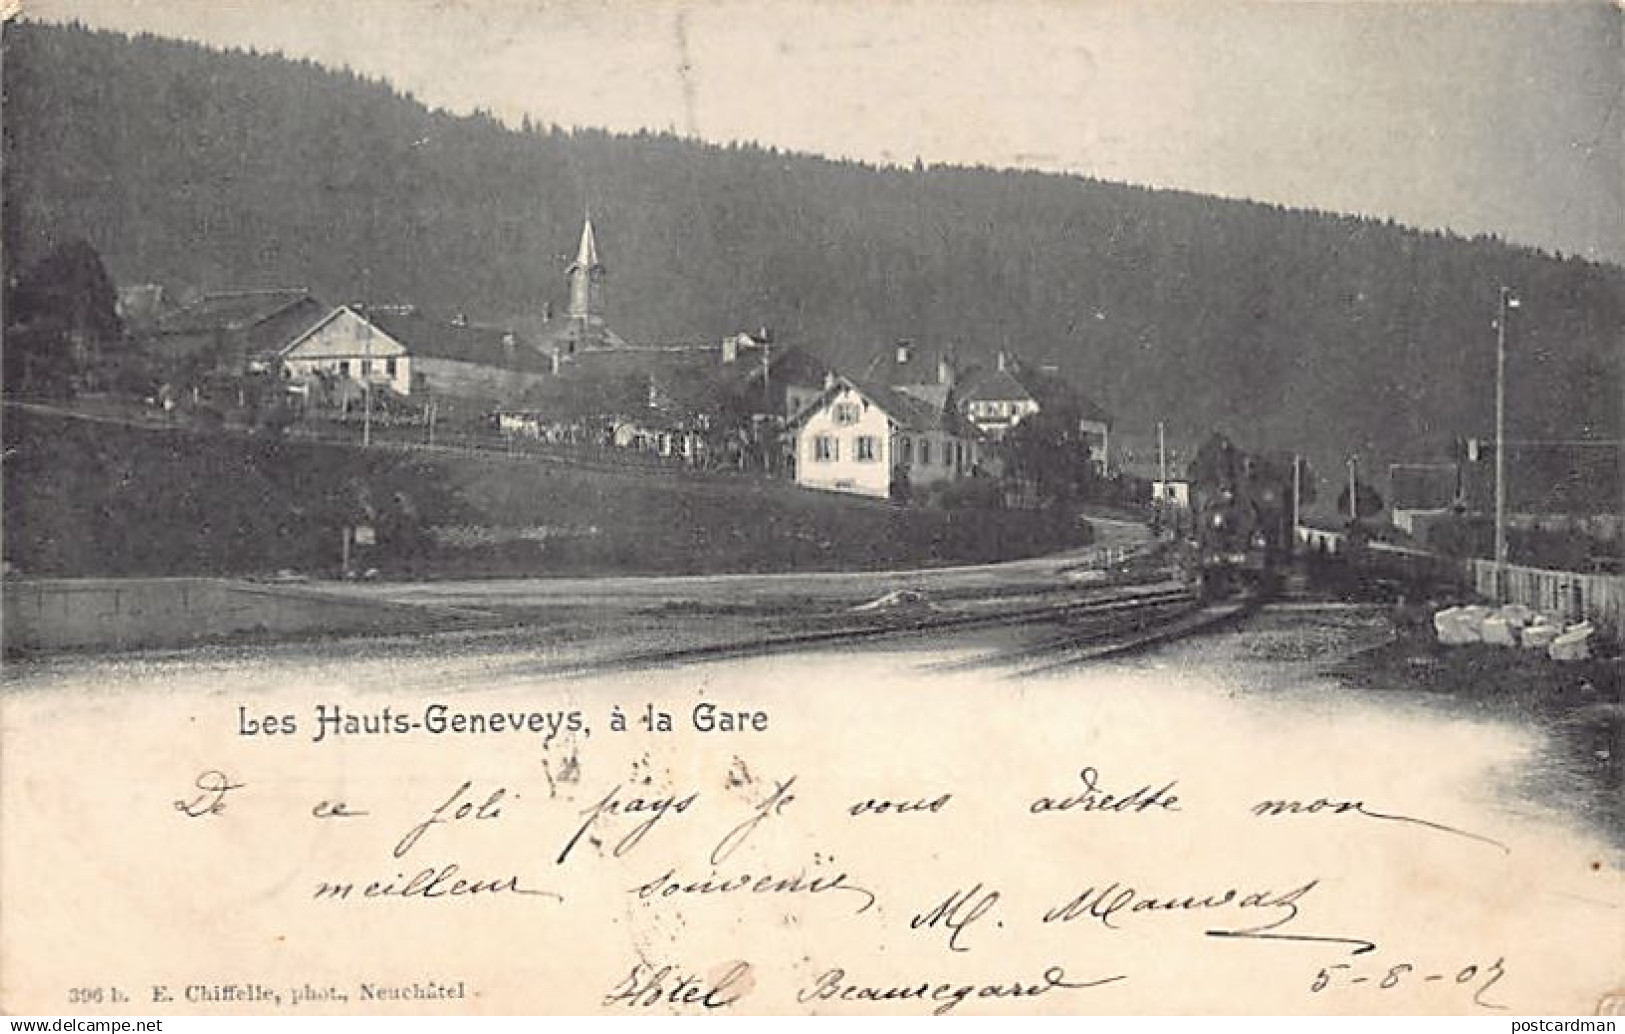 Les Hauts-Geneveys, à la Gare
De ce joli pays je vous adresse mon
meilleur souvenir
M.
Hôtel Beauregard
396 b. E. Chiffelle, phot., Neuchâtel
postcardman